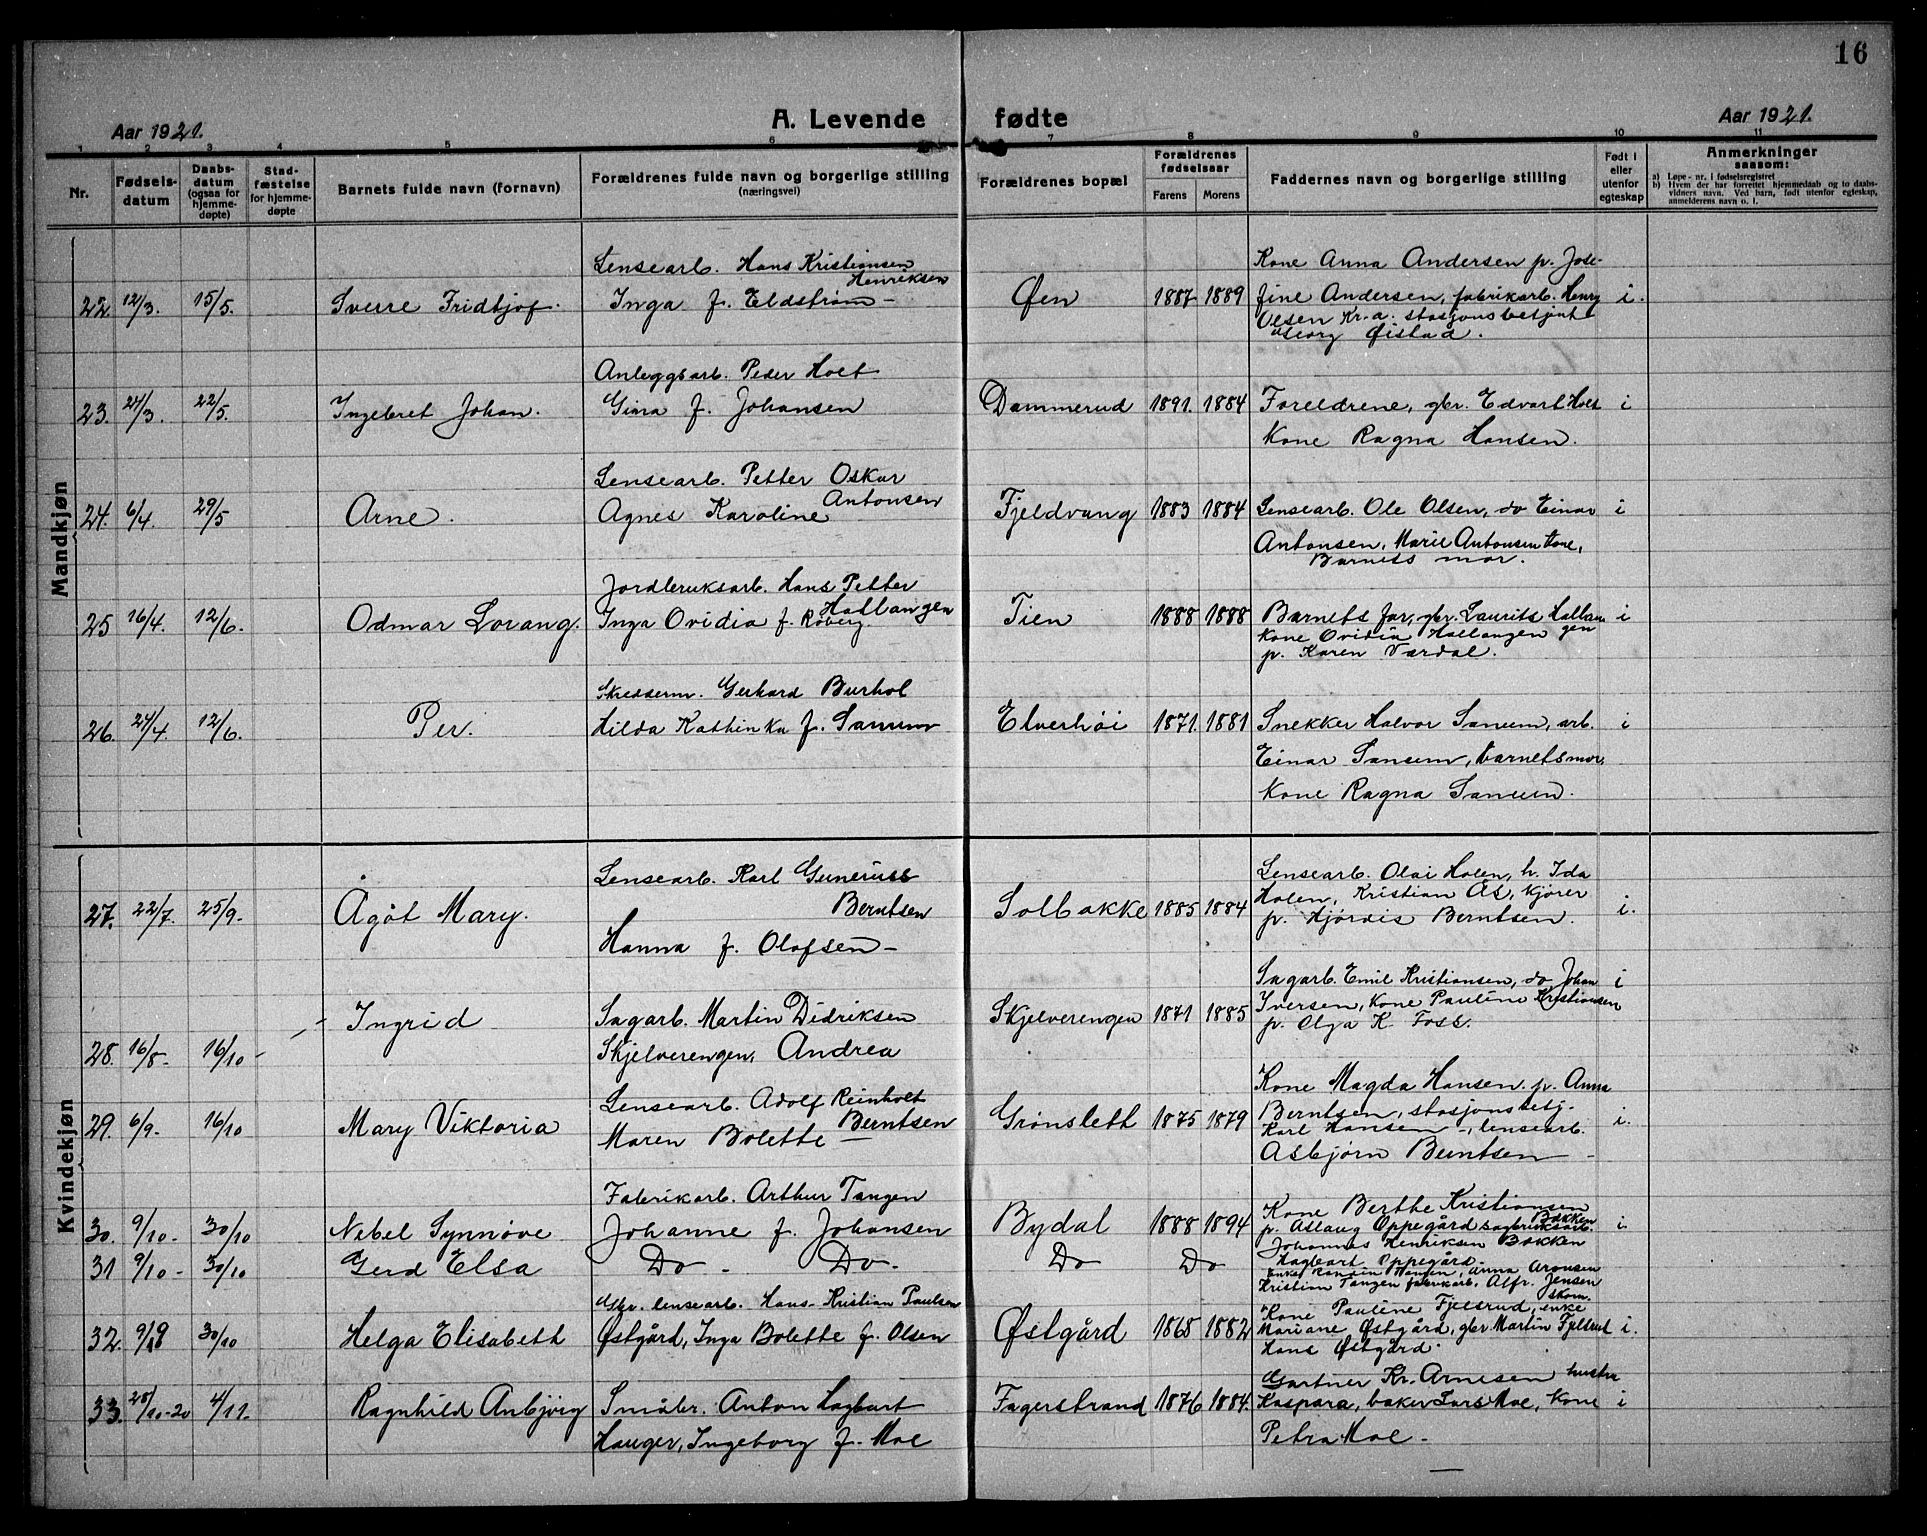 16
A. Levende fødte
Aar 1921.
Aar 1921.
1 2 3 4 5 6 7 8 9 10 11
Nr.
Fødsels-
datum
Daabs-
datum
(ogsaa for
hjemme-
døpte)
Stad-
fæstelse
for hjemme-
døpte
Barnets fulde navn (fornavn)
Forældrenes fulde navn og borgerlige stilling
(næringsvei)
Forældrenes bopæl
Forældrenes
fødselsaar
Farens Morens
Faddernes navn og borgerlige stilling
Født i
eller
utenfor
egteskap
Anmerkninger
saasom:
a) Løpe-nr. i fødselsregistret
b) Hvem der har forrettet hjemmedaab og to daabs-
vidners navn. Ved barn, født utenfor egteskap,
anmelderens navn o. l.
Mandkjøn
22. 12/3. 15/5. Sverre Fridtjof.
Lensearb. Hans Kristiansen
Henriksen
Inga f. Eldstrøm -
Øen 1887 1889
Kone Anna Andersen p. Jose-
fine Andersen, fabrikarb. Henry
Olsen Kr.a. stasjonsbetjent
Georg Øistad.
i.
23. 27/3. 22/5. Ingebret Johan.
Anleggsarb. Peder Holt
Gina f. Johansen
Dammerud 1891. 1884
Foreldrene, gbr. Edvart Holt
Kone Ragna Hansen.
i
24. 6/4. 29/5 Arne.
Lensearb. Petter Oskar
Antonsen
Agnes Karoline
Fjeldvang 1883 1884
Lensearb. Ole Olsen, do Einar
Antonsen, Marie Antonsen Kone,
Barnets mor.
i
25 16/4. 12/6. Odmar Lorang.
Jordbruksarb. Hans Petter
Hallangen
Inga Ovidia f. Røberg.
Tien 1888 1888
Barnets far, gbr. Laurits Hallan
gen
Kone Ovidia Hallangen
p. Karen Værdal.
i
26. 27/4. 12/6. Per.
Skredderm. Gerhard Burhol
Hilda Kathinka f. Sanum
Elverhøi 1871. 1881
Snekker Halvor Sanum, arb.
Einar Sanum, barnets mor,
Kone Ragna Sanum.
i
Kvindekjøn
27. 22/7. 25/9. Ågot Mary.
Lensearb. Karl Guneriuss
Berntsen
Hanna f. Olafsen -
Solbakke 1885 1884
Lensearb. Olai Holen, h. Ida
Holen, Kristian Ås, kjører
p. Hjørdis Berntsen.
i.
28. 16/8- 16/10 - Ingrid
Sagarb. Martin Didriksen
Skjelverengen, Andrea
Skjelverengen 1871 1885
Sagarb. Emil Kristiansen, do Johan
Iversen, Kone Pauline Kristiansen
p. Olga K. Foss.
i
29. 6/9. 16/10 Mary Viktoria
Lensearb. Adolf Reinholt
Berntsen
Maren Bolette -
Grønslett 1875 1879
Kone Magda Hansen p. Anna
Berntsen, stasjonsbetj.
Karl Hansen -, lensearb.
Asbjørn Berntsen -
i.
30. 9/10- 30/10 Nebel Synnøve
Fabrikarb. Arthur Tangen
Johanne f. Johansen
Bydal 1888 1894
Kone Berthe Kristiansen
Bakken
p. Aslaug Oppegård
Johannes Henriksen Bakken
i
31 9/10- 30/10 Gerd Elsa
Do - Do -
Do Do
Hagbart Oppegård -
Hansen, Anna Aronsen
Kristian Tangen fabrikarb. Alfr. Jensen
skom.
32. 30/10 Helga Elisabeth
Gbr. lensearb. Hans Kristian Paulsen
Østgård, Inga Bolette f. Olsen
Østgård 1865 1882
Kone Pauline Fjelsrud, enke
Mariane Østgård, gbr Martin Fjelsrud
Hans Østgård.
i.
33. 28/10-20 4/11. Ragnhild Anbjørg
Småbr. Anton Hagbart
Hauger, Ingeborg f. Moe
Fagerstrand 1876 1884.
Gartner Kr. Arnesen hustru
Kaspara, baker Lars Moe, Kone
Petra Moe -
i